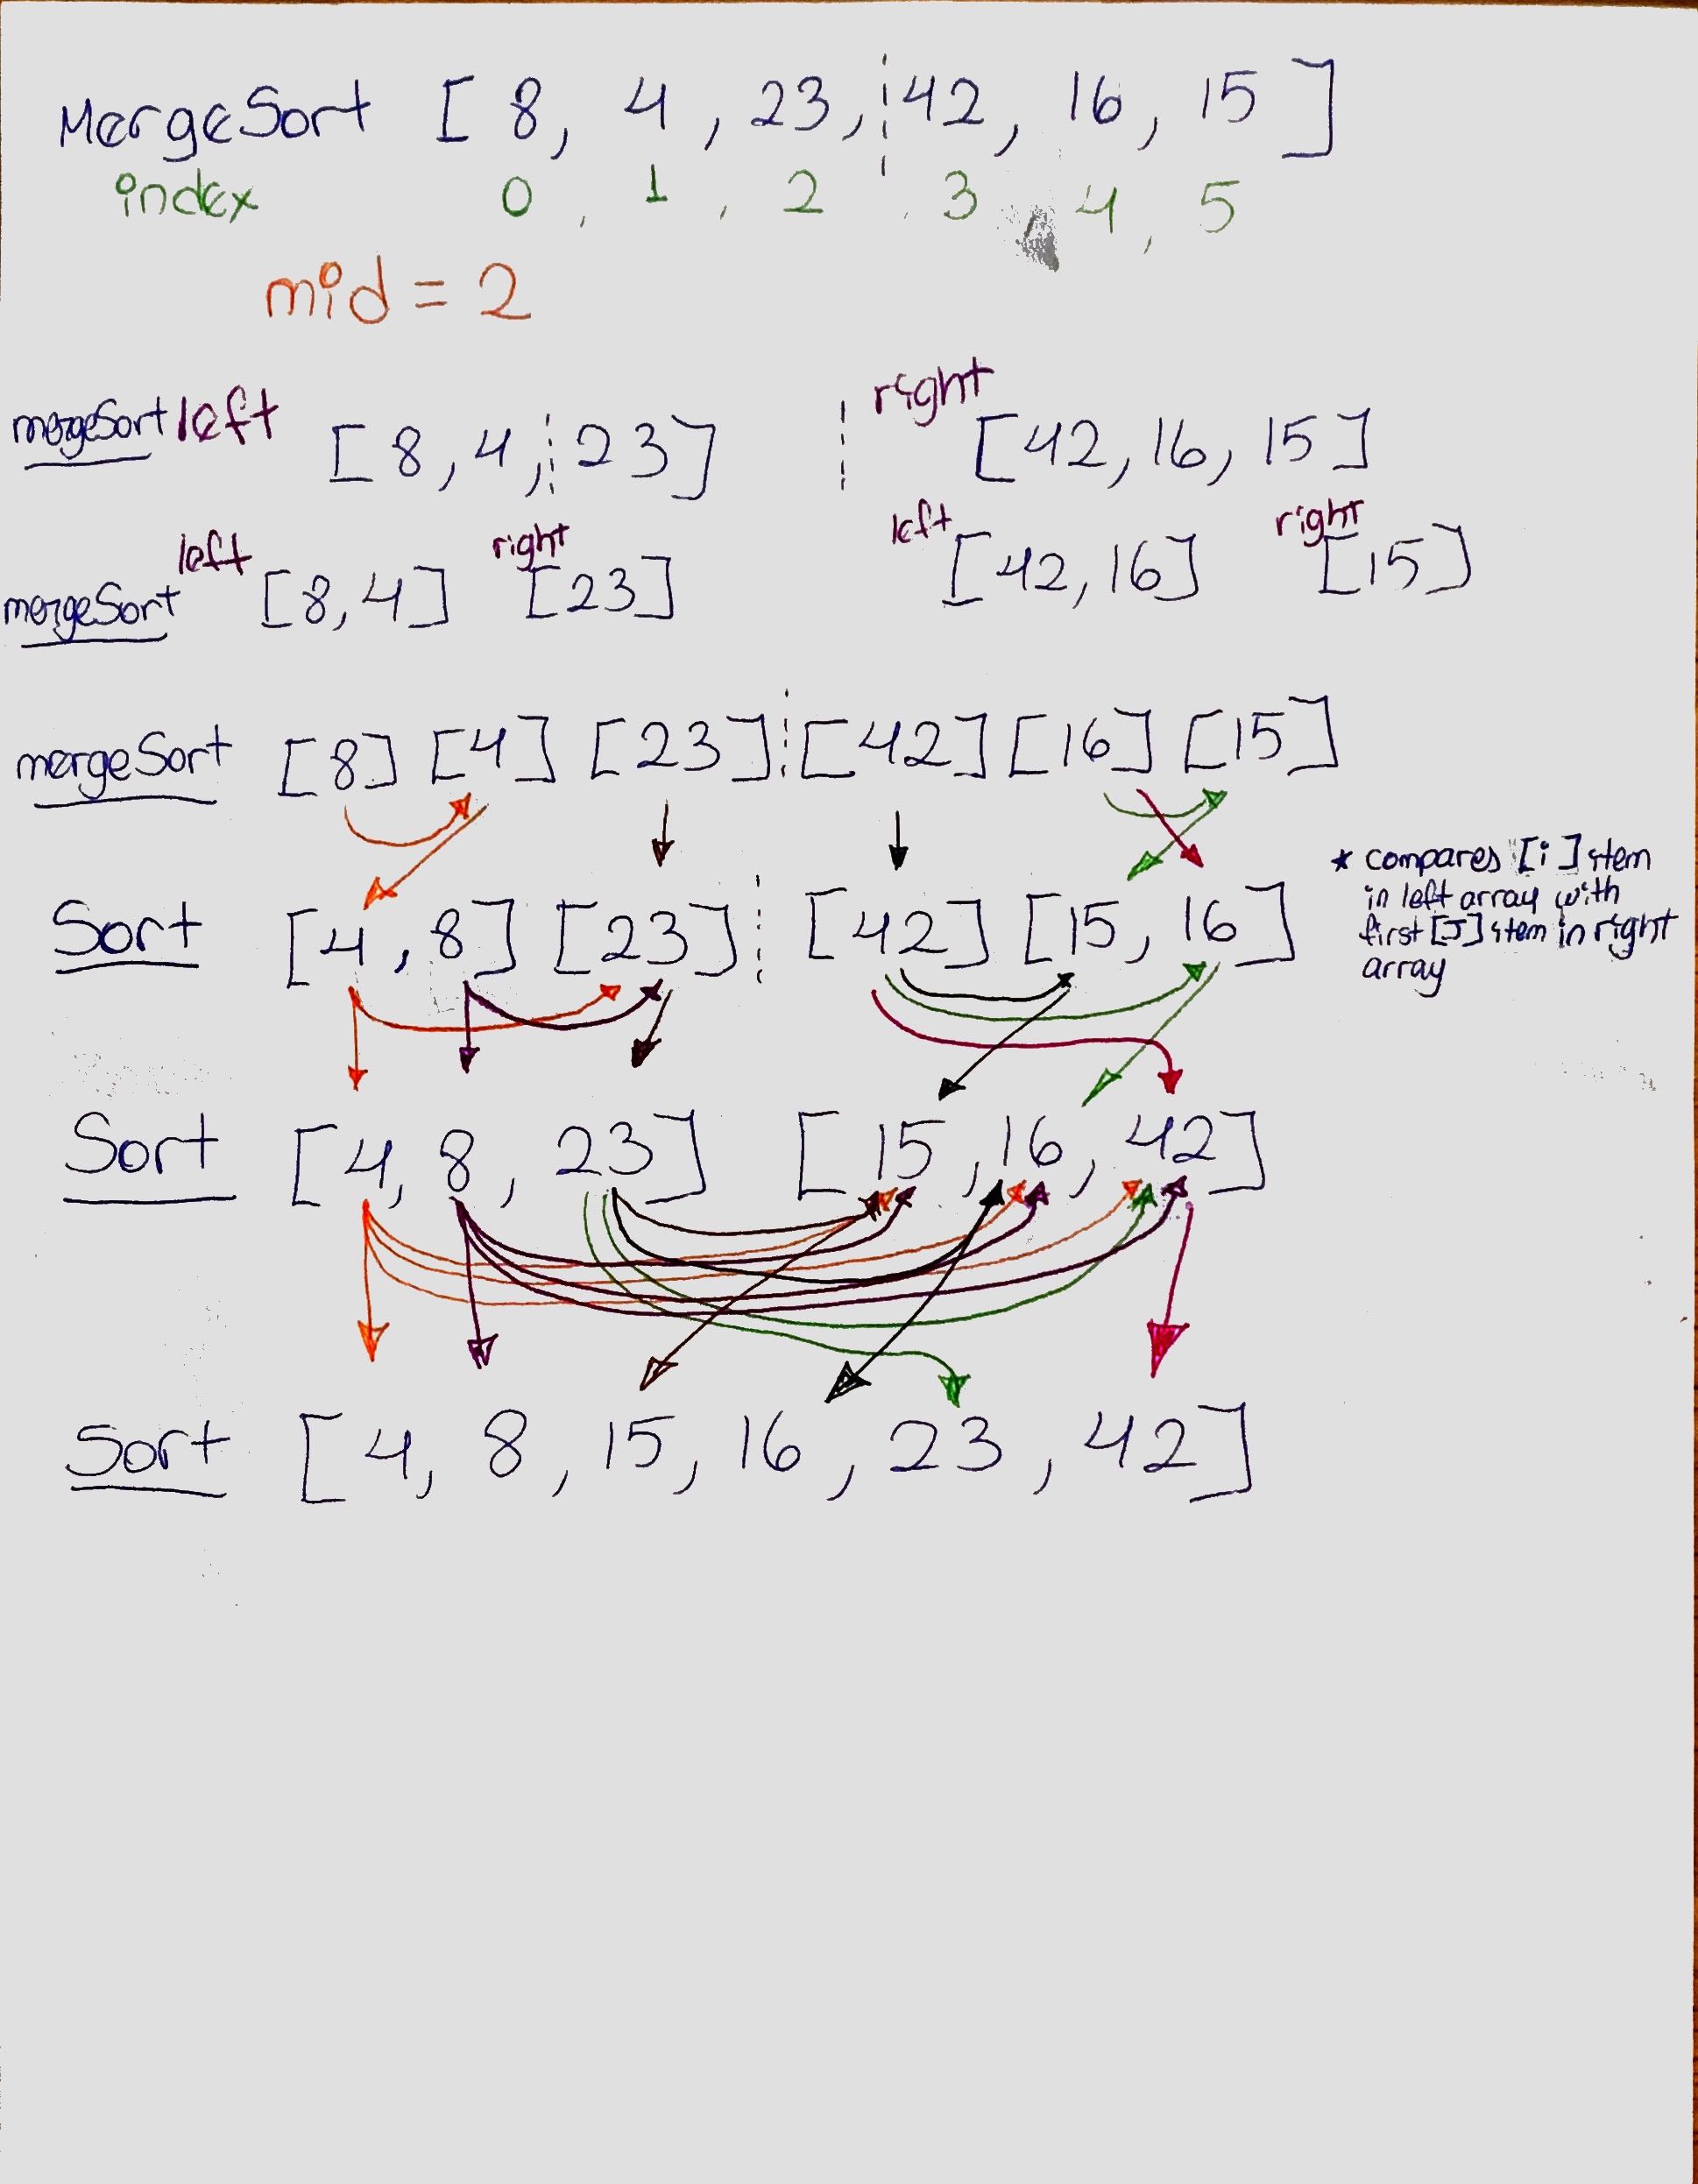 MergeSort [ 8, 4, 23, 42, 16, 15 ]
index 0, 1, 2, 3, 4, 5
mid = 2
mergeSort left [8,4, 23] right [42,16,15]
mergeSort left [8,4] right [23] left [42,16] right [15]
mergeSort [8] [4] [23] [42] [16] [15]
Sort [4,8] [23] [42] [15,16]
* compares [i] item
in left array with
first [J] item in right
array
Sort [4, 8, 23] [15, 16, 42]
Sort [4, 8, 15, 16, 23, 42]